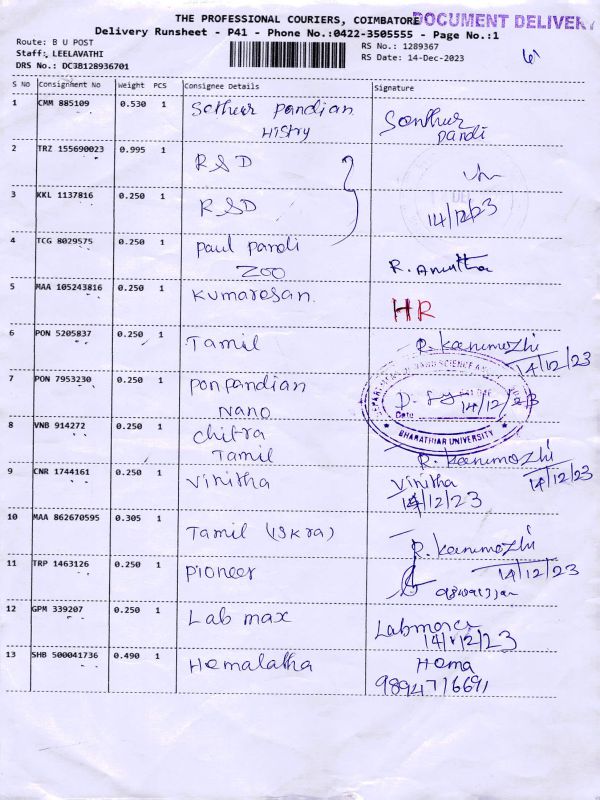 THE PROFESSIONAL COURIERS, COIMBATORE
DOCUMENT DELIVERY
Delivery Runsheet - P41 - Phone No.:0422-3505555 - Page No.:1
Route: B U POST
Staff: LEELAVATHI
DRS No.: DC3B128936701
RS No.: 1289367
RS Date: 14-Dec-2023
S NO Consignment No Weight PCS Consignee Details Signature
1 CMM 885109 0.530 1 Sethur Pandian Senthur
History Pandi
2 TRZ 155690023 0.995 1 RSD
3 KKL 1137816 0.250 1 RSD 14/12/23
4 TCG 8029575 0.250 1 Paul Pandi
ZOO R. Anutha
5 MAA 105243816 0.250 1 Kumaresan. HR
6 PON 5205837 0.250 1 Tamil R. Kanimozhi
14/12/23
7 PON 7953230 0.250 1 Ponpandian 14/12/23
Nano Date
BHARATHIAR UNIVERSITY
8 VNB 914272 0.250 1 Chitra
Tamil R. Kanimozhi
14/12/23
9 CNR 1744161 0.250 1 Vinitha Vinitha
14/12/23
10 MAA 862670595 0.305 1 Tamil (Iskra) R. Kanimozhi
14/12/23
11 TRP 1463126 0.250 1 Pioneer
12 GPM 339207 0.250 1 Lab max
14/12/23
13 SHB 500041736 0.490 1 Hemalatha Hema
9894716691